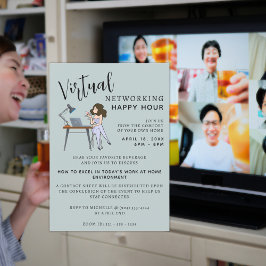 Virtual
NETWORKING
HAPPY HOUR
JOIN US
FROM THE COMFORT
OF YOUR OWN HOME
APRIL 18, 20XX
5PM - 6PM
GRAB YOUR FAVORITE BEVERAGE
AND JOIN US TO DISCUSS
HOW TO EXCEL IN TODAY'S WORK AT HOME
ENVIRONMENT
A CONTACT SHEET WILL BE DISTRIBUTED UPON
THE CONCLUSION OF THE EVENT TO HELP US
STAY CONNECTED
RSVP TO MICHELLE @
ZOOM ID: